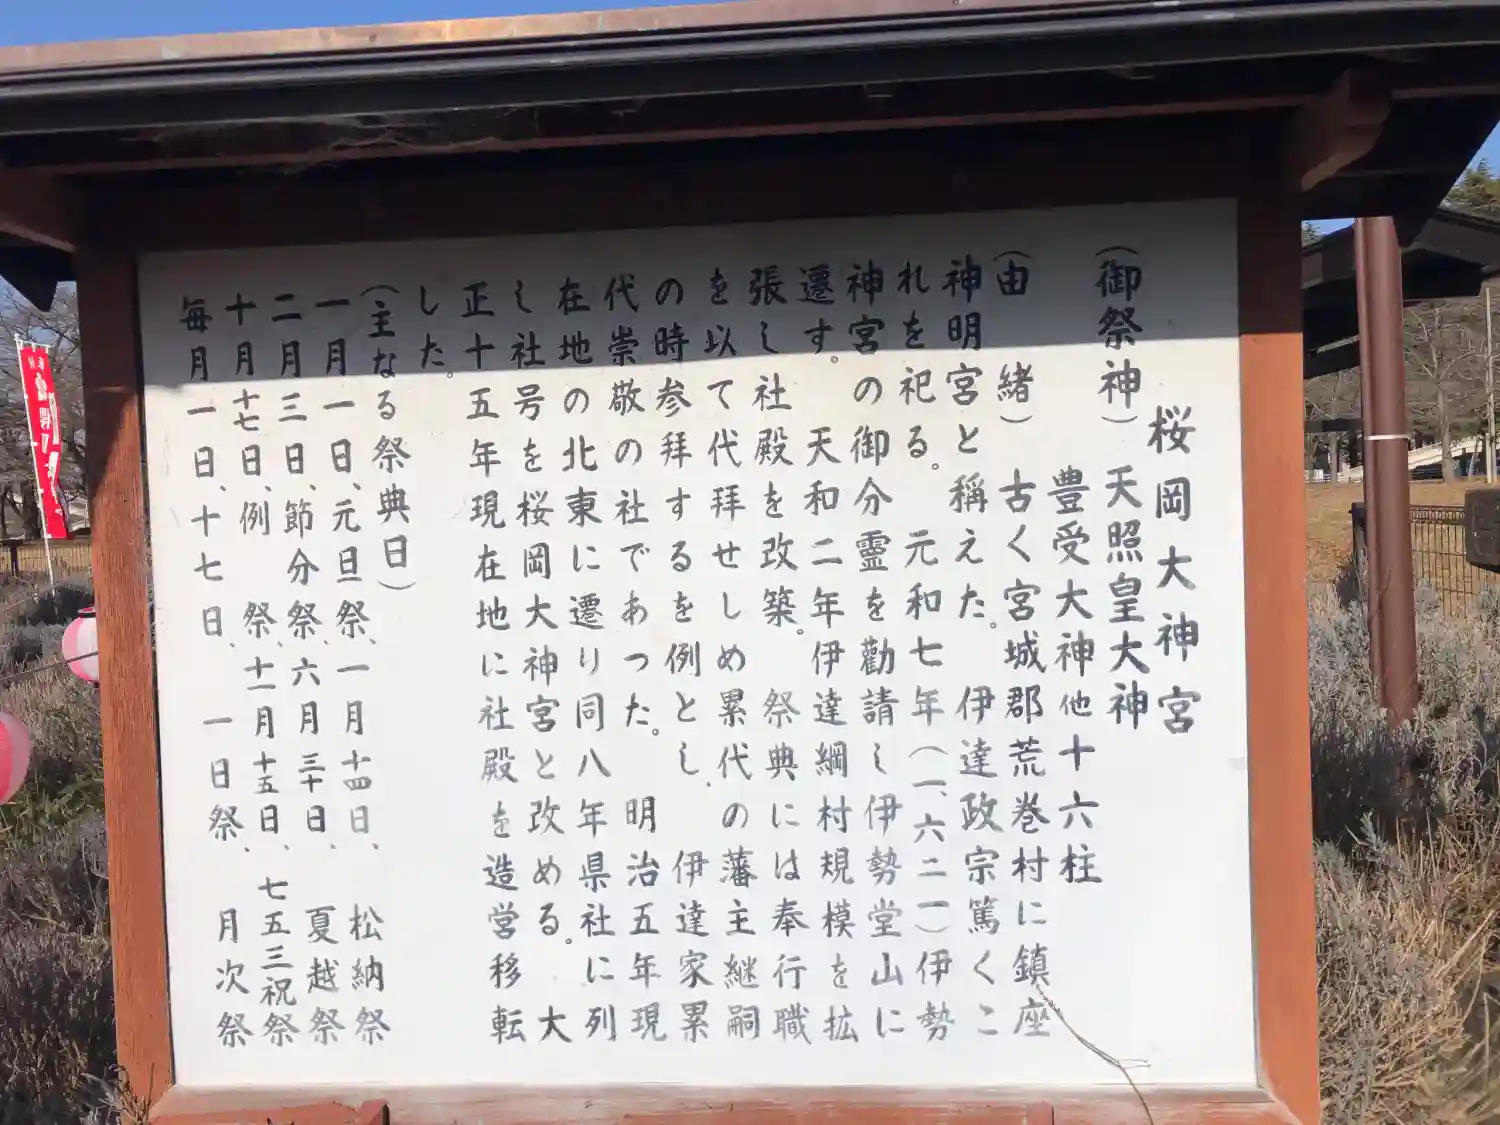 桜岡大神宮
（御祭神）天照皇大神
豊受大神他十六柱
（由　緒）古く宮城郡荒巻村に鎮座
神明宮と稱えた。伊達政宗篤くこ
れを祀る。元和七年（一、六二一）伊勢
神宮の御分霊を勸請し伊勢堂山に
遷す。天和二年伊達綱村規模を拡
張し社殿を改築。祭典には奉行職
を以て代拝せしめ累代の藩主継嗣
の時参拝するを例とし、伊達家累
代崇敬の社であった。明治五年現
在地の北東に遷り同八年県社に列
し社号を桜岡大神宮と改める。大
正十五年現在地に社殿を造営移転
した。
（主なる祭典日）
一月一日、元旦祭、一月十四日、松納祭
二月三日、節分祭、六月三十日、夏越祭
十月十七日、例　祭、十一月十五日、七五三祝祭
毎月一日、十七日、一日祭、月次祭